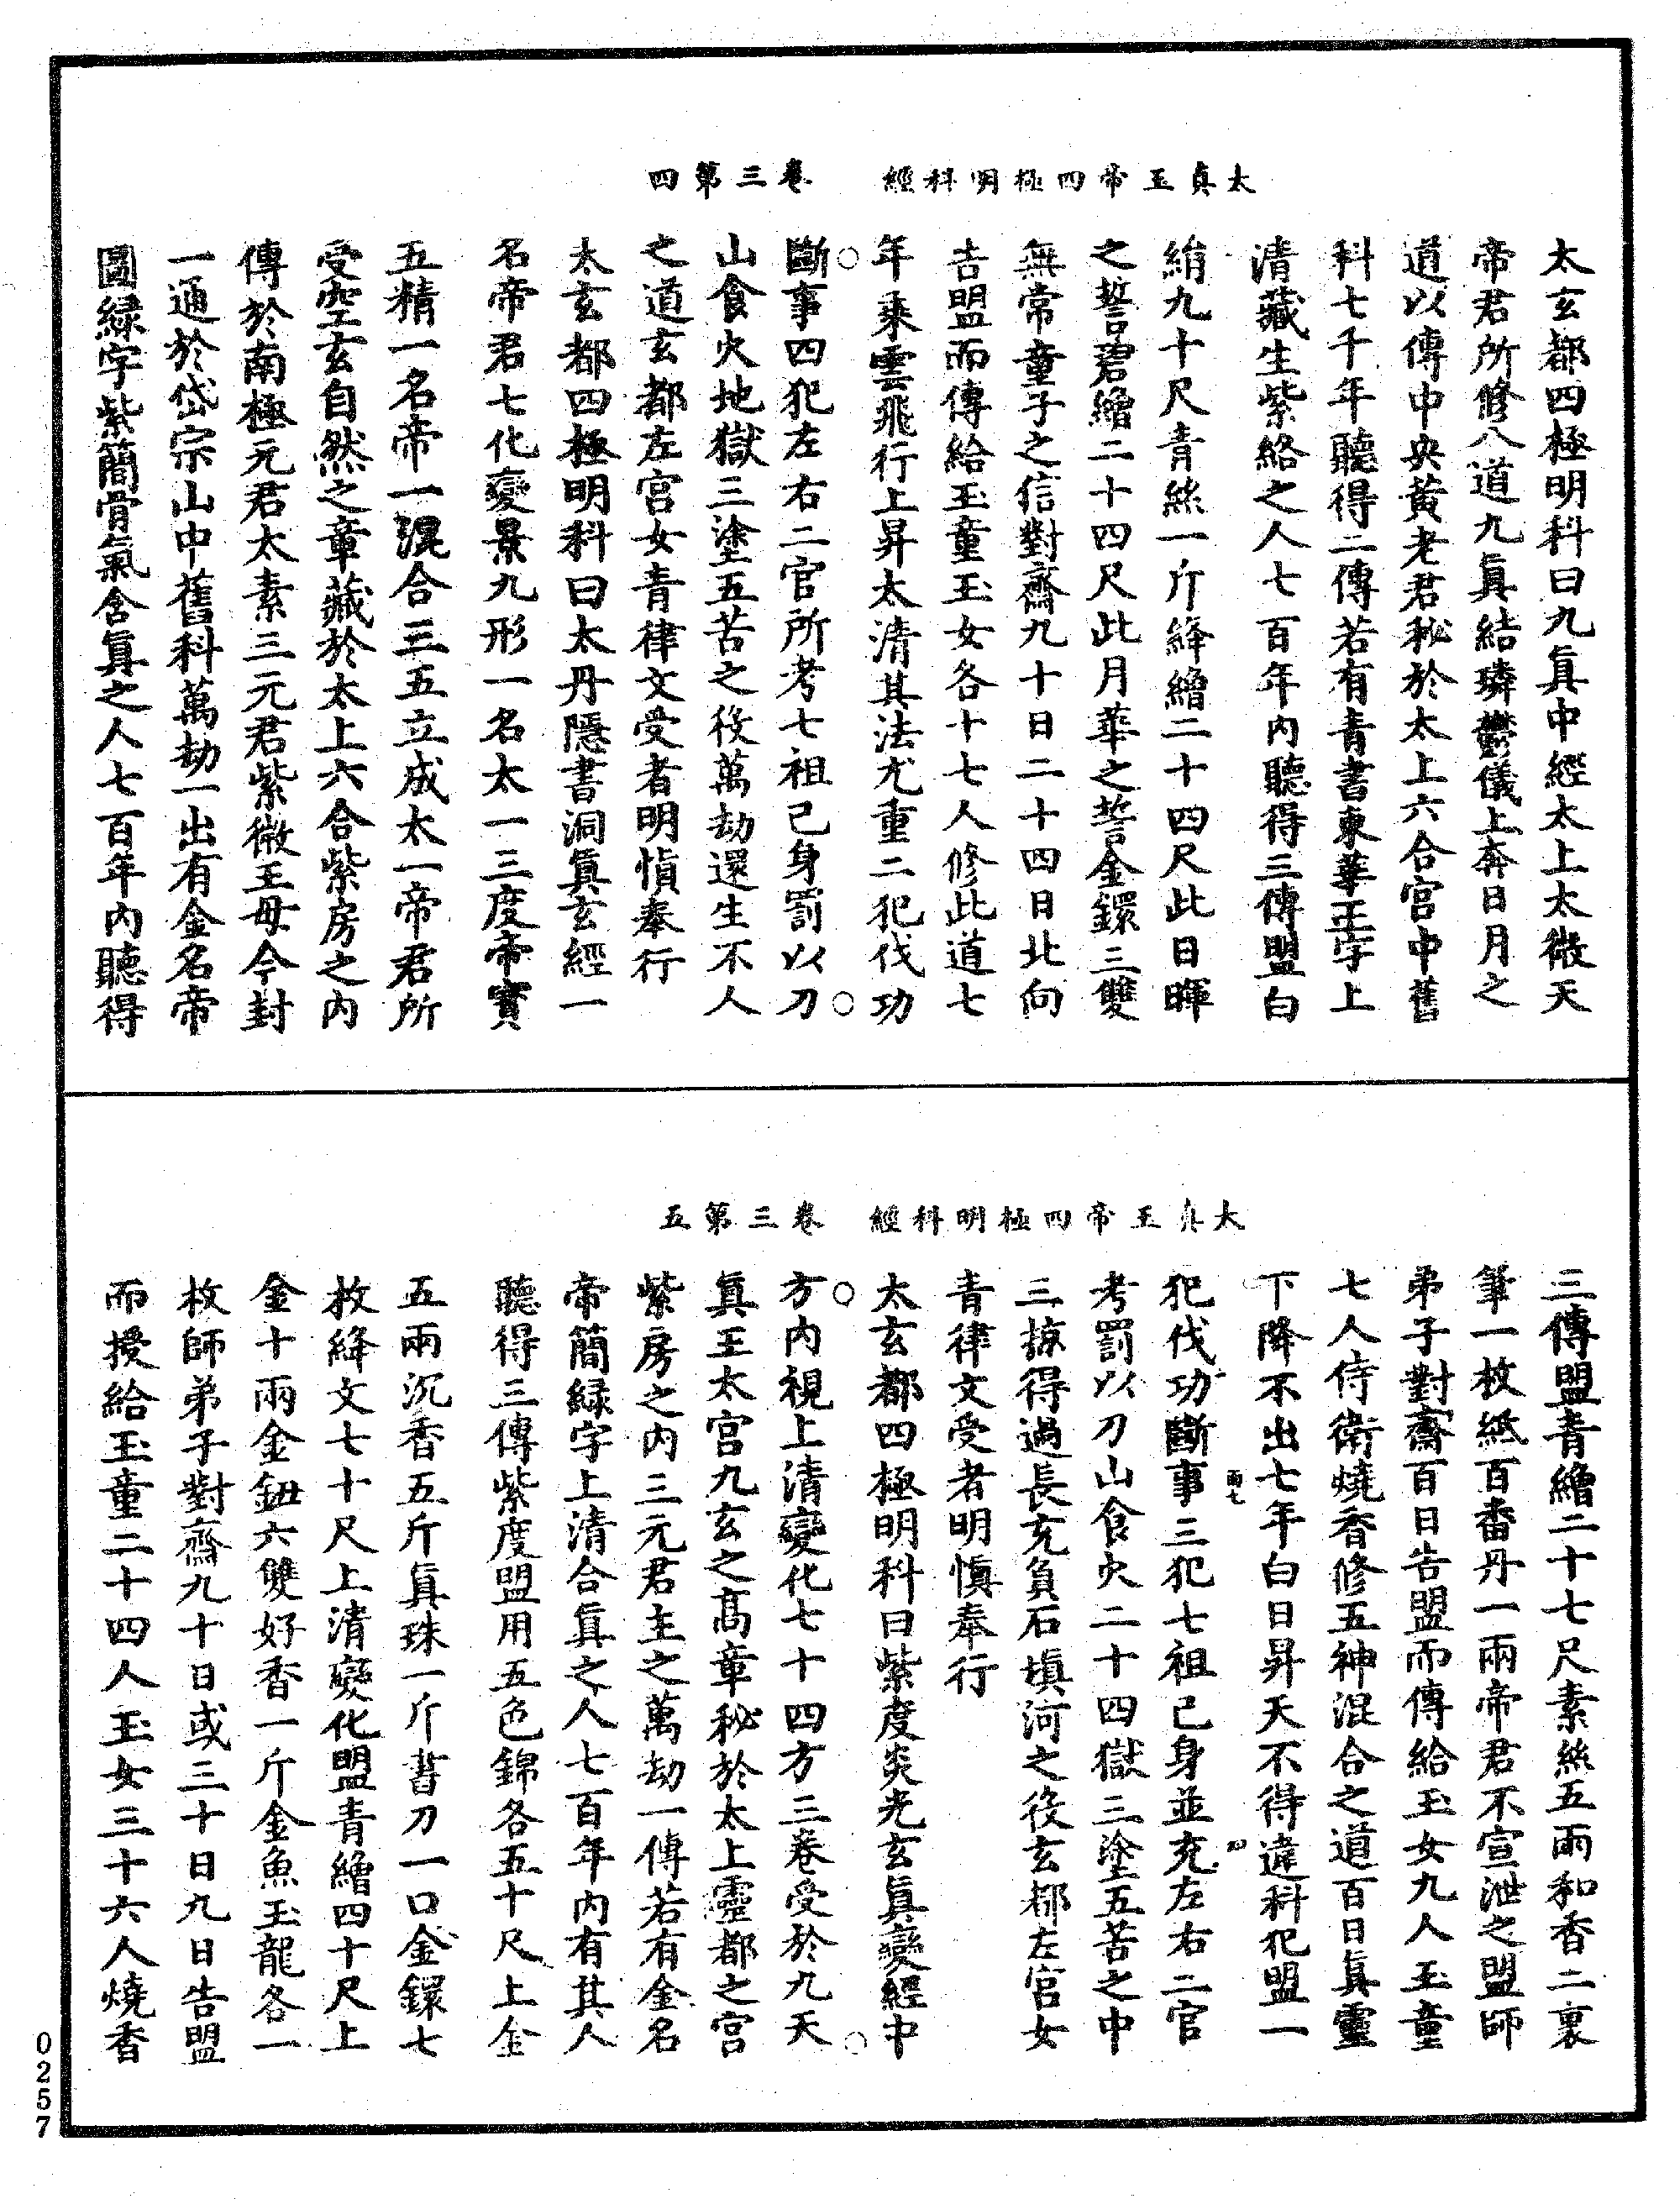 太真玉帝四極明科經　卷三第四
太玄都四極明科曰九真中經太上太微天
帝君所修八道九真結璘鬱儀上奔日月之
道以傳中央黃老君秘於太上六合宮中舊
科七千年聽得二傳若有青書東華玉字上
清藏生紫絡之人七百年內聽得三傳盟白
絹九十尺青絲一斤絳繒二十四尺此日暉
之誓碧繒二十四尺此月華之誓金鐶三雙
無常童子之信對齋九十日二十四日北向
告盟而傳給玉童玉女各十七人修此道七
年乘雲飛行上昇太清其法尤重二犯伐功
斷事四犯左右二官所考七祖己身罰以刀
山食火地獄三塗五苦之役萬劫還生不人
之道玄都左宮女青律文受者明慎奉行
太玄都四極明科曰太丹隱書洞真玄經一
名帝君七化變景九形一名太一三度帝寶
五精一名帝一混合三五立成太一帝君所
受空玄自然之章藏於太上六合紫房之內
傳於南極元君太素三元君紫微王母今封
一通於岱宗山中舊科萬劫一出有金名帝
圖緑字紫簡骨氣含真之人七百年內聽得
太真玉帝四極明科經　卷三第五
三傳盟青繒二十七尺素絲五兩和香二裹
筆一枚紙百番丹一兩帝君不宣泄之盟師
弟子對齋百日告盟而傳給玉女九人玉童
七人侍衛燒香修五神混合之道百日真靈
下降不出七年白日昇天不得違科犯盟一
犯伐功斷事三犯七祖己身並充左右二官
考罰以刀山食火二十四獄三塗五苦之中
三掠得過長充負石填河之役玄都左宮女
青律文受者明慎奉行
太玄都四極明科曰紫度炎光玄真變經中
方內視上清變化七十四方三卷受於九天
真王太宮九玄之高章秘於太上靈都之宮
紫房之內三元君主之萬劫一傳若有金名
帝簡緑字上清合真之人七百年內有其人
聽得三傳紫度盟用五色錦各五十尺上金
五兩沉香五斤真珠一斤書刀一口金鐶七
枚絳文七十尺上清變化盟青繒四十尺上
金十兩金鈕六雙好香一斤金魚玉龍各一
枚師弟子對齋九十日或三十日九日告盟
而授給玉童二十四人玉女三十六人燒香
雨七
四
0257